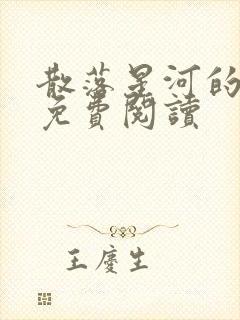 散落星河的
免費閱讀
王慶生